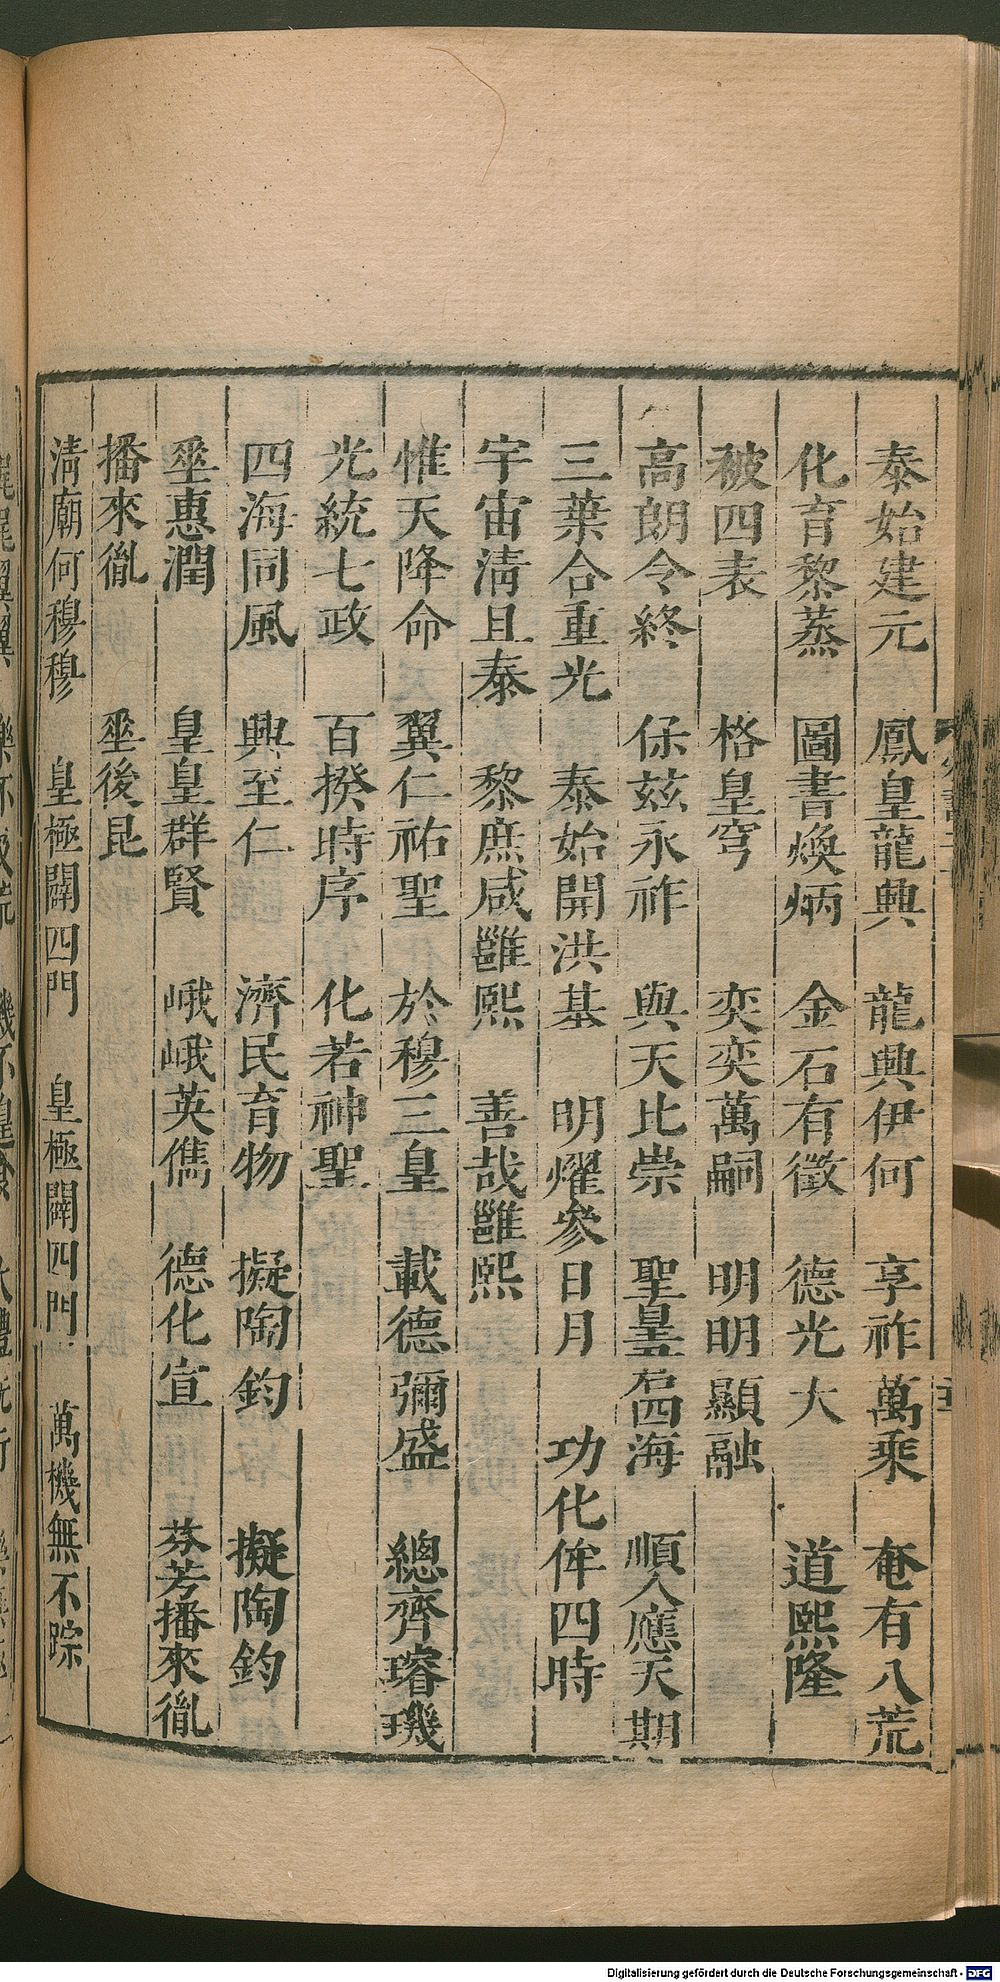 泰始建元 鳳皇龍興 龍興伊何 享祚萬乘 奄有八荒
化育黎蒸 圖書煥炳 金石有徵 德光大 道熙隆
被四表 格皇穹 奕奕萬嗣 明明顯融
高朗令終 保茲永祚 與天比崇 聖皇君四海 順人應天期
三葉合重光 泰始開洪基 明燿參日月 功化侔四時
宇宙淸且泰 黎庶咸雝熙 善哉雝熙
惟天降命 翼仁祐聖 於穆三皇 載德彌盛 總齊璿璣
光統七政 百揆時序 化若神聖
四海同風 興至仁 濟民育物 擬陶鈞 擬陶鈞
垂惠潤 皇皇群賢 峨峨英儁 德化宣 芬芳播來胤
播來胤 垂後昆
淸廟何穆穆 皇極闢四門 皇極闢四門 萬機無不踪
Digitalisierung gefördert durch die Deutsche Forschungsgemeinschaft - DFG